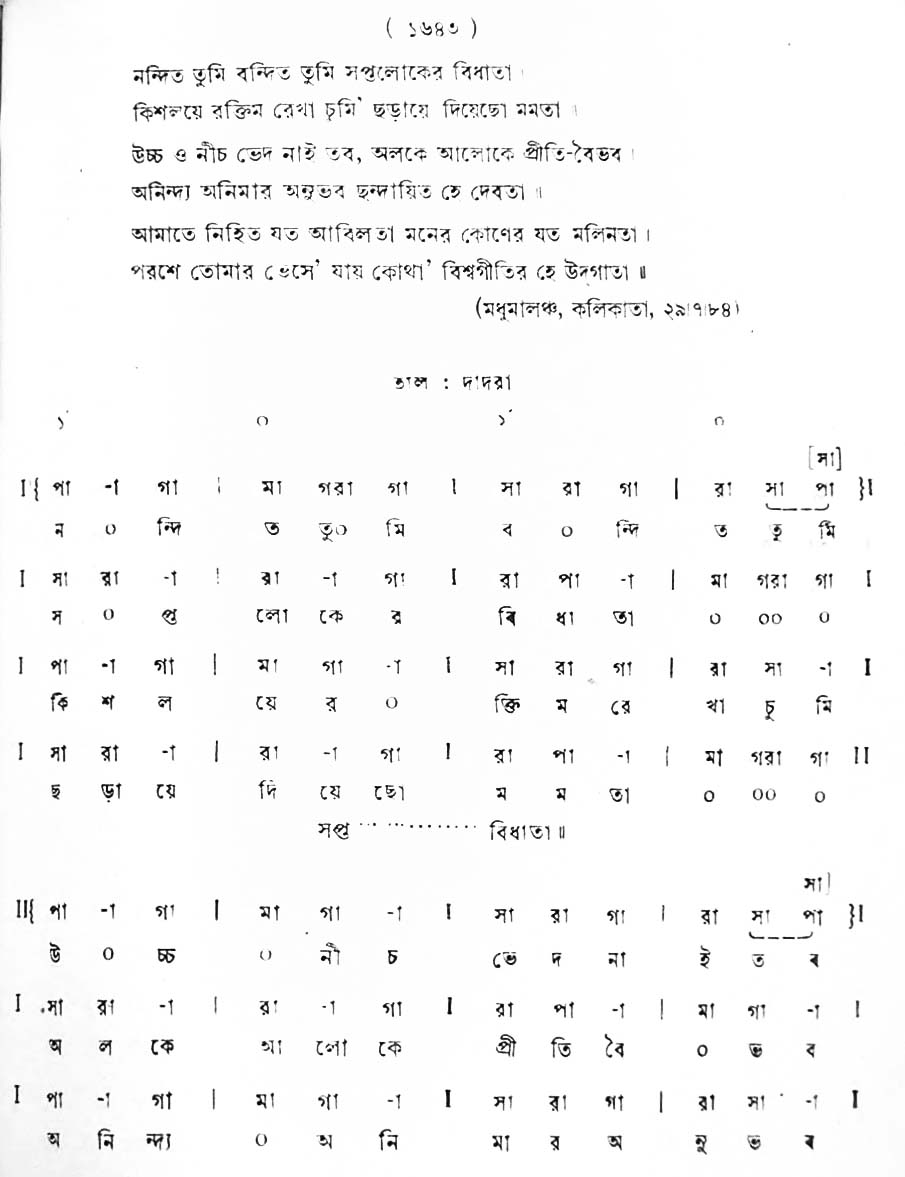 ( ১৬৪৩ )
নন্দিত তুমি বন্দিত তুমি সপ্তলোকের বিধাতা ।
কিশলয়ে রক্তিম রেখা চুমি' ছড়ায়ে দিয়েছো মমতা ।
উচ্চ ও নীচ ভেদ নাই তব, অলকে আলোকে প্রীতি-বৈভব ।
অনিন্দ্য অনিমার অনুভব ছন্দায়িত হে দেবতা ॥
আমাতে নিহিত যত আবিলতা মনের কোণের যত মলিনতা ।
পরশে তোমার ভেসে' যায় কোথা' বিশ্বগীতির হে উদগাতা ॥
(মধুমালঞ্চ, কলিকাতা, ২৯।৭।৮৪)
তাল : দাদরা
১´ ০ ১´ ০
[সা]
I{ পা -া গা | মা গরা গা I সা রা গা | রা সা পা }I
ন ০ ন্দি ত তু০ মি ব ০ ন্দি ত তু মি
I সা রা -া | রা -া গা I রা পা -া | মা গরা গা I
স ০ প্ত লো কে র বি ধা তা ০ ০০ ০
I পা -া গা | মা গা -া I সা রা গা | রা সা -া I
কি শ ল য়ে র ০ ক্তি ম রে খা চু মি
I সা রা -া | রা -া গা I রা পা -া | মা গরা গা II
ছ ড়া য়ে দি য়ে ছো ম ম তা ০ ০০ ০
সপ্ত ··············· বিধাতা ॥
সা]
II{ পা -া গা | মা গা -া I সা রা গা | রা সা পা }I
উ ০ চ্চ ০ নী চ ভে দ না ই ত ৰ
I সা রা -া | রা -া গা I রা পা -া | মা গা -া I
অ ল কে আ লো কে প্রী তি বৈ ০ ভ ব
I পা -া গা | মা গা -া I সা রা গা | রা সা -া I
অ নি ন্দ্য ০ অ নি মা র অ নু ভ ৰ